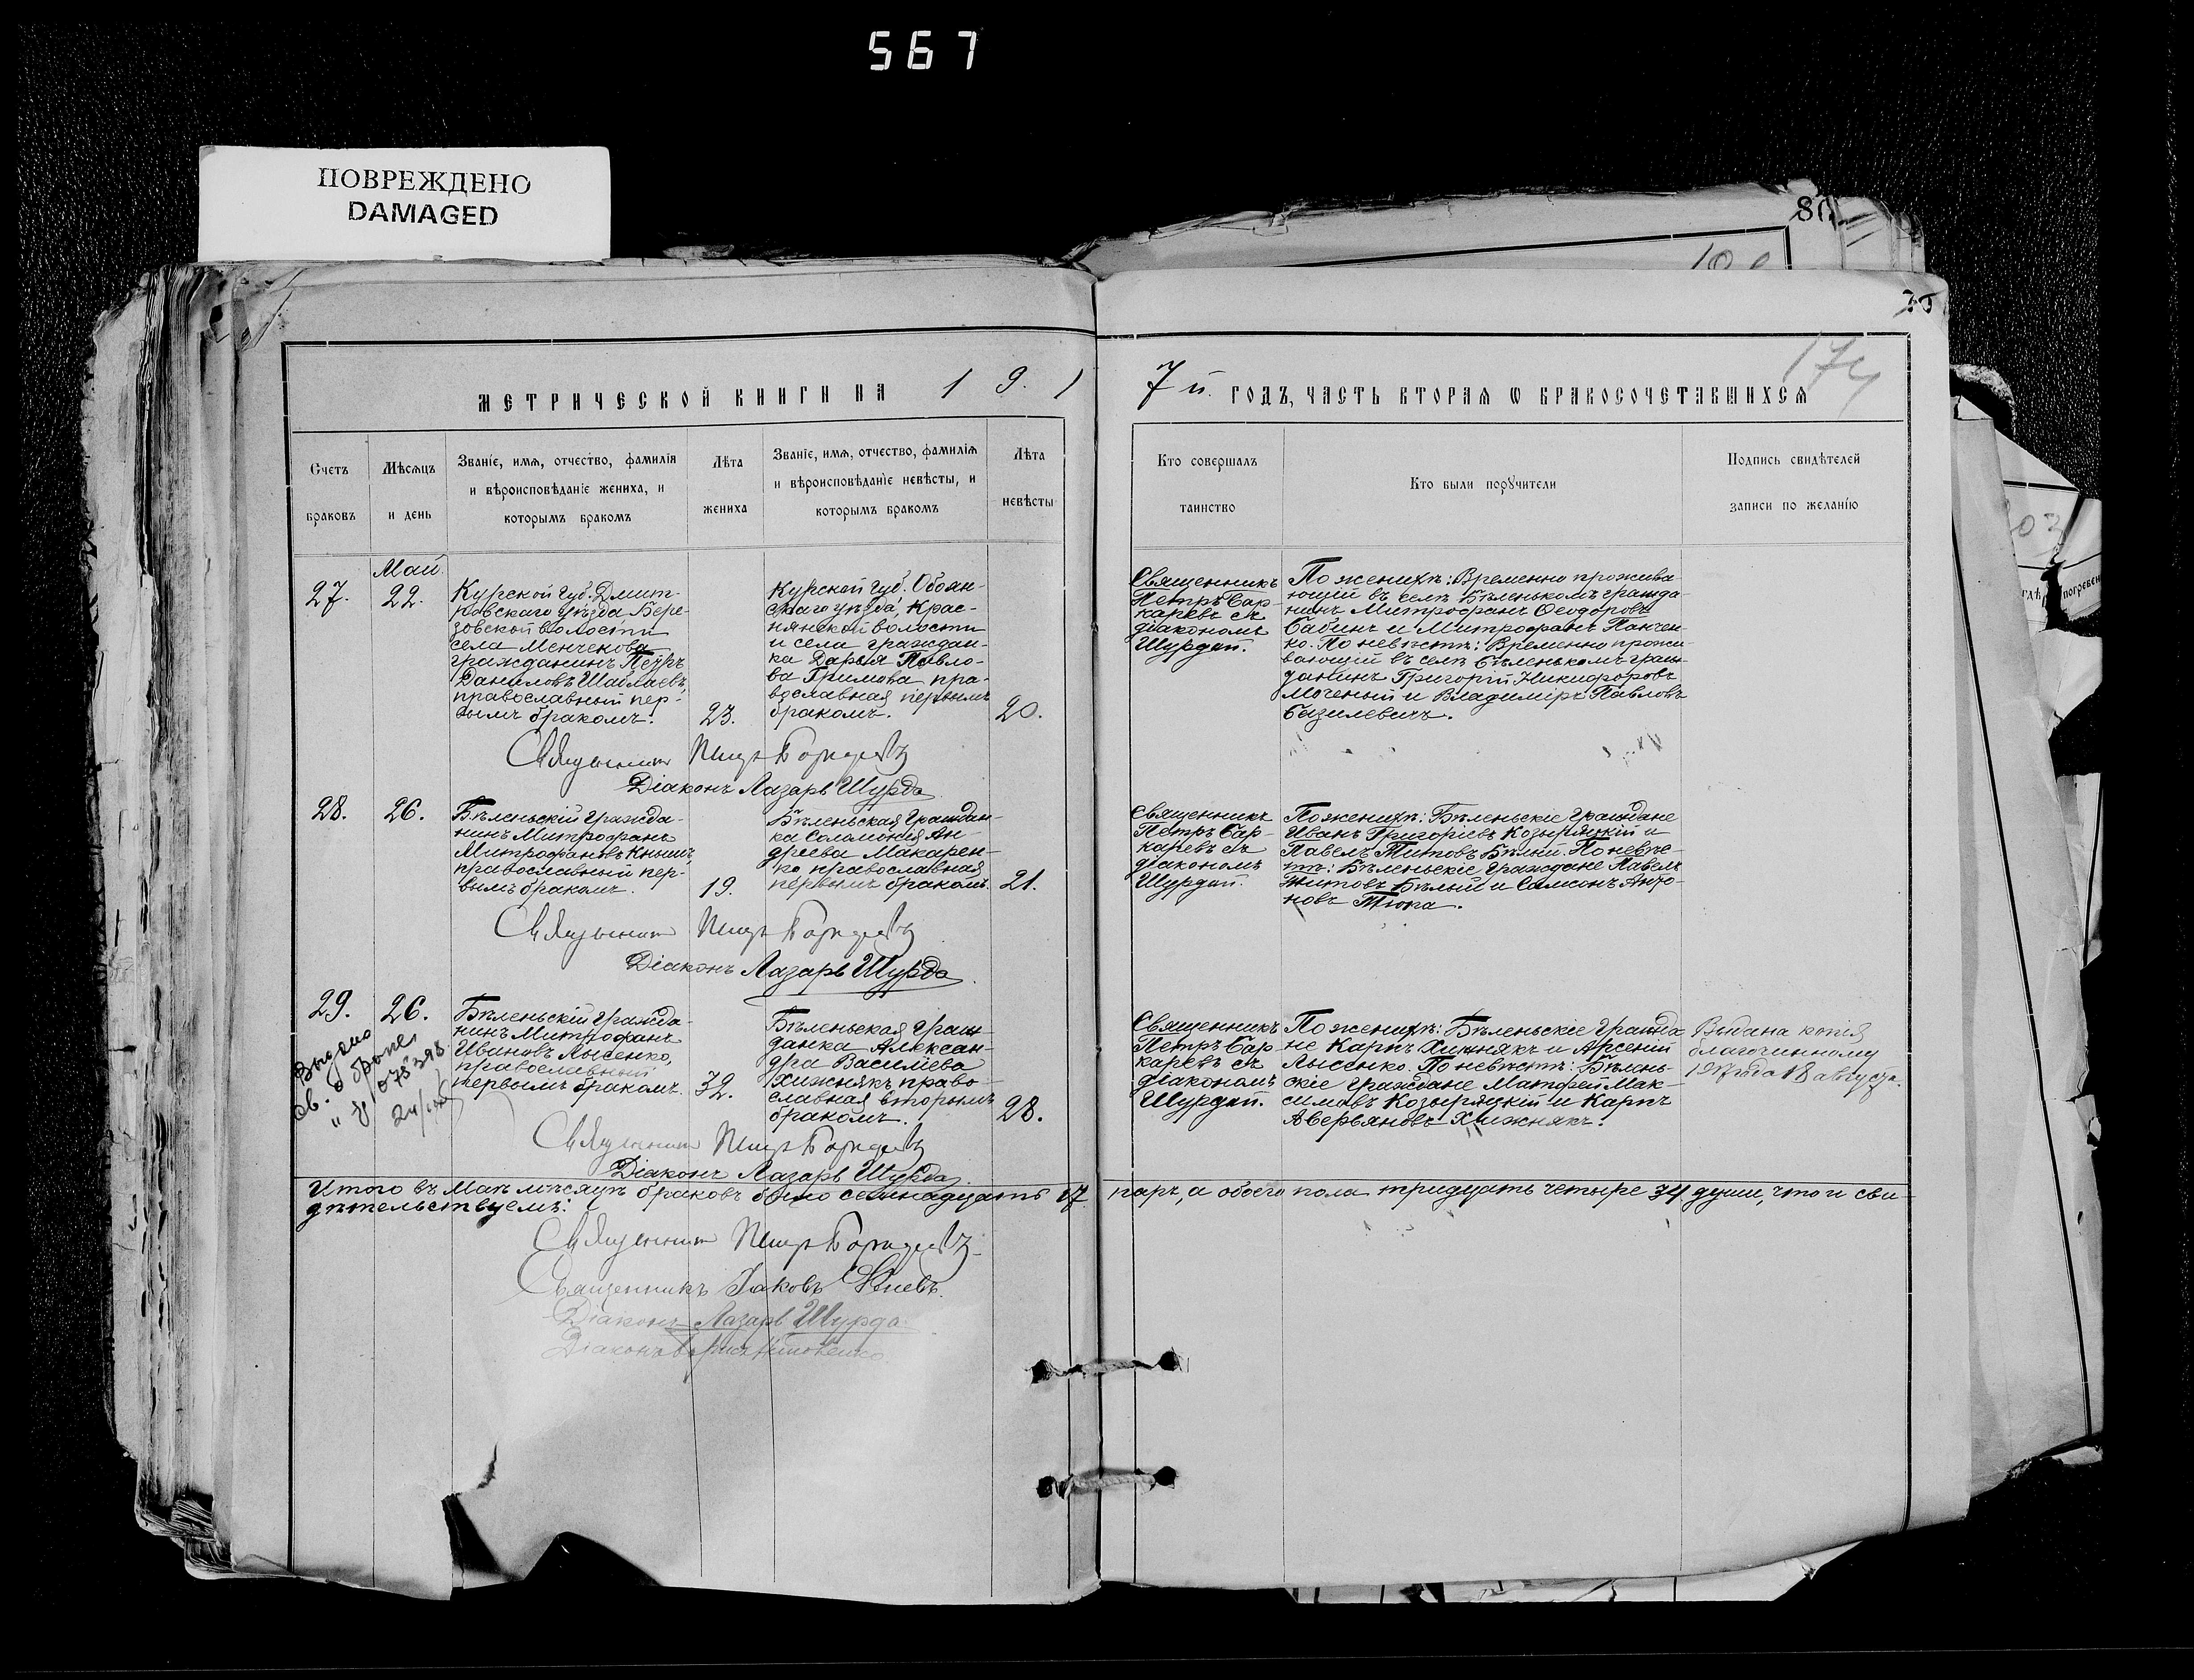 567
ПОВРЕЖДЕНО
DAMAGED
80
75
174
МЕТРИЧЕСКОЙ КНИГИ НА 1 9. 1
7 й. ГОДЪ, ЧАСТЬ ВТОРАЯ Ѡ БРАКОСОЧЕТАВШИХСЯ
Счетъ
браковъ
Мѣсяцъ
и день
Званіе, имя, отчество, фамилія
и вѣроисповѣданіе жениха, и
которымъ бракомъ
Лѣта
жениха
Званіе, имя, отчество, фамилія
и вѣроисповѣданіе невѣсты, и
которымъ бракомъ
Лѣта
невѣсты
Кто совершалъ
таинство
Кто были поручители
Подпись свидѣтелей
записи по желанію
Май.
27.
22.
Курской губ. Дмит-
ровскаго уѣзда Бере-
зовской волости
села Менченова
гражданинъ Петръ
Даниловъ
православный пер-
вымъ бракомъ.
23.
Курской губ. Обоян-
скаго уѣзда, Крас-
нянской волости
и села граждан-
ка Дарья Павло-
ва Гримова пра-
вославная первымъ
бракомъ.
20.
Священникъ
Петръ Бар-
каревъ съ
діакономъ
Шурдой.
По женихѣ: Временно прожива-
ющій въ селѣ Бѣленькомъ гражда-
нинъ Митрофанъ Ѳеодоровъ
Бабинъ и Митрофанъ Панчен-
ко. По невѣстѣ: Временно прожи
вающій въ селѣ Бѣленькомъ граж-
данинъ Григорій Никифоровъ
Моченый и Владиміръ Павловъ
Базилевичъ.
Священникъ Петръ Баркаревъ
Діаконъ Лазарь Шурда
28.
26.
Бѣленьскій гражда-
нинъ Митрофанъ
Митрофановъ Кнышъ,
православный пер-
вымъ бракомъ.
19.
Бѣленьская граждан-
ка Соломонія Ан-
дреева Макарен-
ко православная
первымъ бракомъ.
21.
Священникъ
Петръ Бар-
каревъ съ
діакономъ
Шурдой.
По женихѣ: Бѣленьскіе граждане
Иванъ Григоріевъ Козыряцкій и
Павелъ Титовъ Бѣлый. По невѣс-
тѣ: Бѣленьскіе граждане Павелъ
Титовъ Бѣлый и Самсонъ Анто-
новъ Тюпа.
Священникъ Петръ Баркаревъ
Діаконъ Лазарь Шурда.
29.
26.
Выдано
св. о браке
Бѣленьскій гражда-
нинъ Митрофанъ
Ивановъ Лысенко,
православный
первымъ бракомъ.
32.
Бѣленьская граж-
данка Алексан-
дра Василіева
Хижнякъ право-
славная вторымъ
бракомъ.
28.
Священникъ
Петръ Бар-
каревъ съ
діакономъ
Шурдой.
По женихѣ: Бѣленьскіе гражда
не Карпъ Хижнякъ и Арсеній
Лысенко. По невѣстѣ: Бѣлень-
скіе граждане Матѳей Мак-
симовъ Козыряцкій и Карпъ
Аверьяновъ Хижнякъ.
Выдана копія
благочинному
1917 года 18 августа.
Священникъ Петръ Баркаревъ
Діаконъ Лазарь Шурда.
Итого въ Маѣ мѣсяцѣ браковъ было семнадцать 17 паръ, а обоего пола тридцать четыре 34 души, что и сви-
дѣтельствуемъ:
Священникъ Петръ Баркаревъ
Священникъ Іаковъ
Діаконъ Лазарь Шурда
Діаконъ